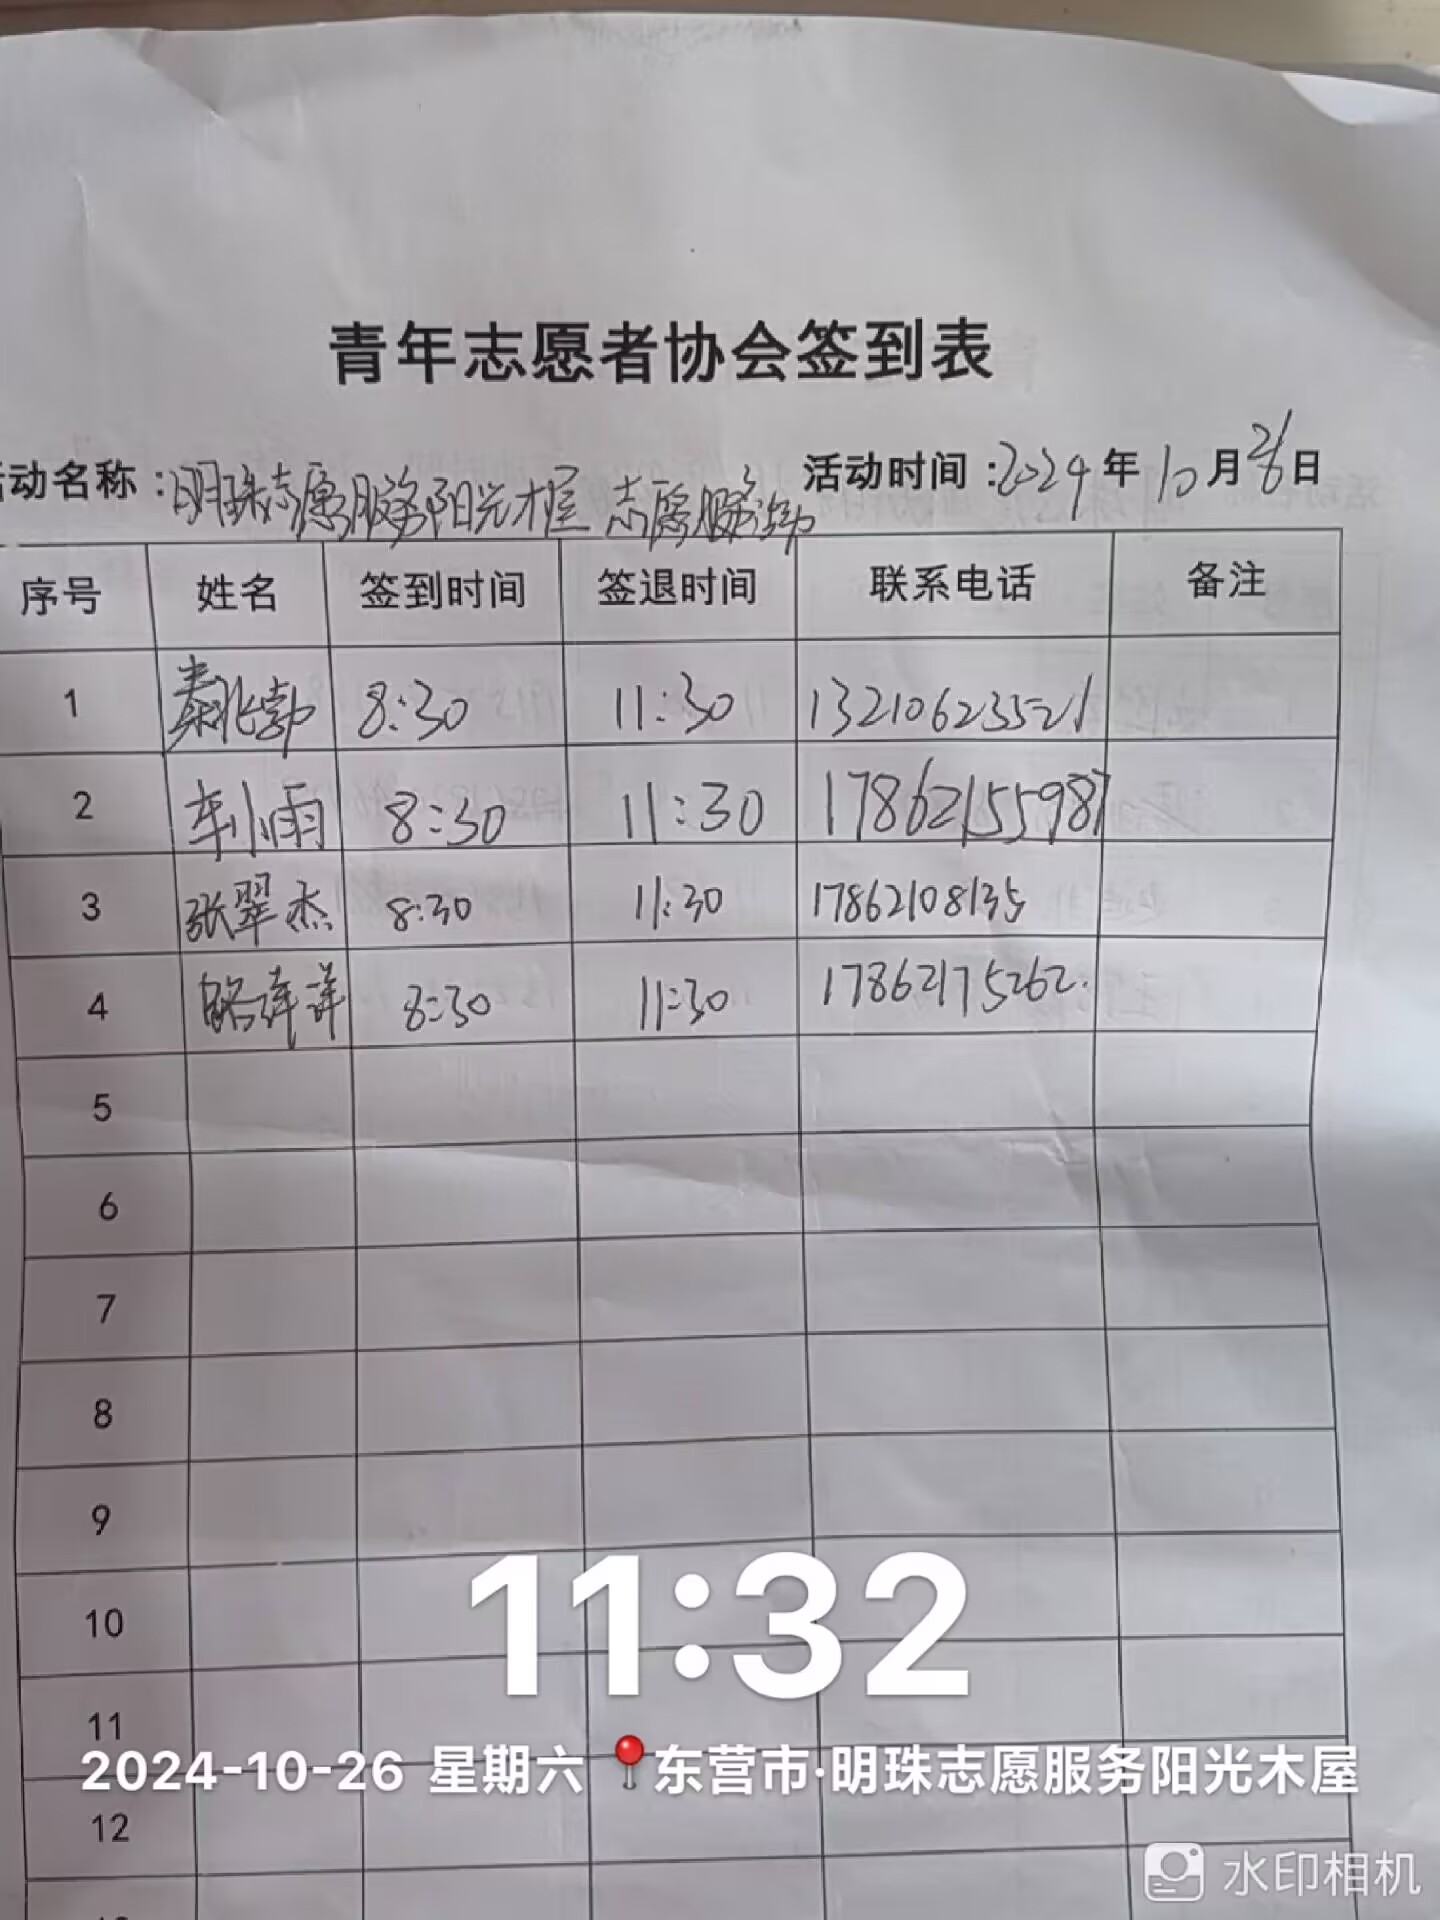 青年志愿者协会签到表
活动名称：明珠志愿服务阳光木屋志愿服务活动 活动时间：2024年10月26日
序号 姓名 签到时间 签退时间 联系电话 备注
1 秦兆勃 8:30 11:30 13210623521
2 车小雨 8:30 11:30 17862155987
3 张翠杰 8:30 11:30 17862108135
4 8:30 11:30 17862175262.
5
6
7
8
9
10
11
12
11:32
2024-10-26 星期六 东营市·明珠志愿服务阳光木屋
水印相机